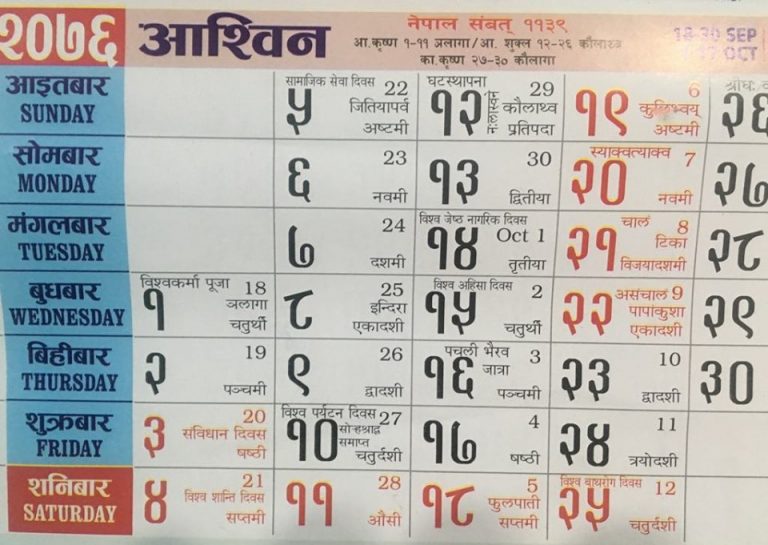 २०७६ आश्विन
नेपाल संबत् ११३९
आ.कृष्ण १-११ ञलागा/आ. शुक्ल १२-२६ कौलाथ्व
का.कृष्ण २७-३० कौलागा
18-30 SEP
1-17 OCT
आइतबार
SUNDAY
सामाजिक सेवा दिवस 22
५ जितियापर्व
अष्टमी
घटस्थापना 29
१२ नःलास्वने कौलाथ्व
प्रतिपदा
6
१९ कुलिभ्वय्
अष्टमी
२६
सोमबार
MONDAY
23
६ नवमी
30
१३ द्वितीया
स्याक्वत्याक्व 7
२० नवमी
२७
मंगलबार
TUESDAY
24
७ दशमी
विश्व जेष्ठ नागरिक दिवस
१४ Oct 1
तृतीया
चालं 8
२१ टिका
विजयादशमी
२८
बुधबार
WEDNESDAY
विश्वकर्मा पूजा 18
१ ञलागा
चतुर्थी
25
८ इन्दिरा
एकादशी
विश्व अहिंसा दिवस 2
१५ चतुर्थी
असंचालं 9
२२ पापाकुशा
एकादशी
२९
बिहीबार
THURSDAY
19
२ पञ्चमी
26
९ द्वादशी
पचली भैरव 3
१६ जात्रा
पञ्चमी
10
२३ द्वादशी
३०
शुक्रबार
FRIDAY
20
३ संविधान दिवस
षष्ठी
विश्व पर्यटन दिवस 27
१० सोह्रश्राद्ध
समाप्त
चतुर्दशी
4
१७ षष्ठी
11
२४ त्रयोदशी
शनिबार
SATURDAY
21
४ विश्व शान्ति दिवस
सप्तमी
28
११ औंसी
5
१८ फुलपाती
सप्तमी
विश्व बाथरोग दिवस 12
२५ चतुर्दशी